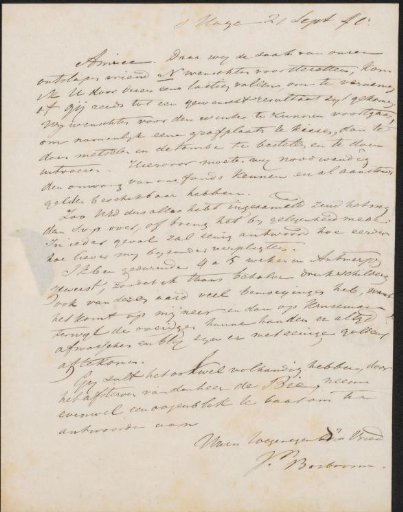 s'Hage 21 Sept 40.
Amice. Daar wij de zaak van onzen
ontslapen vriend N wenschen voort te zetten, kom
ik U door dezen eens lastig vallen om te vernemen
of gij reeds tot een gewenscht resultaat zijt gekomen.
Wij wenschten voor den winter te kunnen voortgaan
om namelijk eene grafplaats te kiezen, dan te
doen metselen en de tombe te bestellen en te doen
uitvoeren. Hiervoor moeten wij noodwendig
den omvang van ons fonds kennen en al aanstonds
gelden beschikbaar hebben.
Zoo UEd dus alles hebt ingezameld zend het mij
dan s.v.p. over, of breng het bij gelegenheid mede.
In ieder geval zal een antwoord hoe eerder
hoe liever mij bijzonder verpligten.
Ik ben gedurende 4 a 5 weken in Antwerpen
geweest, zoodat ik thans behalve
ook van dezen aard veel bemoeijingen heb, want
het komt op mij neer en dan op
terwijl de overigen hunne handen en altyd
afwasschen en blij zijn er met eenige gelden
af te komen.
Gij zult het ook wel volhandig hebben, door
het aftreden van den heer de Bee, neem
evenwel een oogenblik te baat om te
antwoorden aan
Uwen toegenegen Vriend
J. Bosboom.